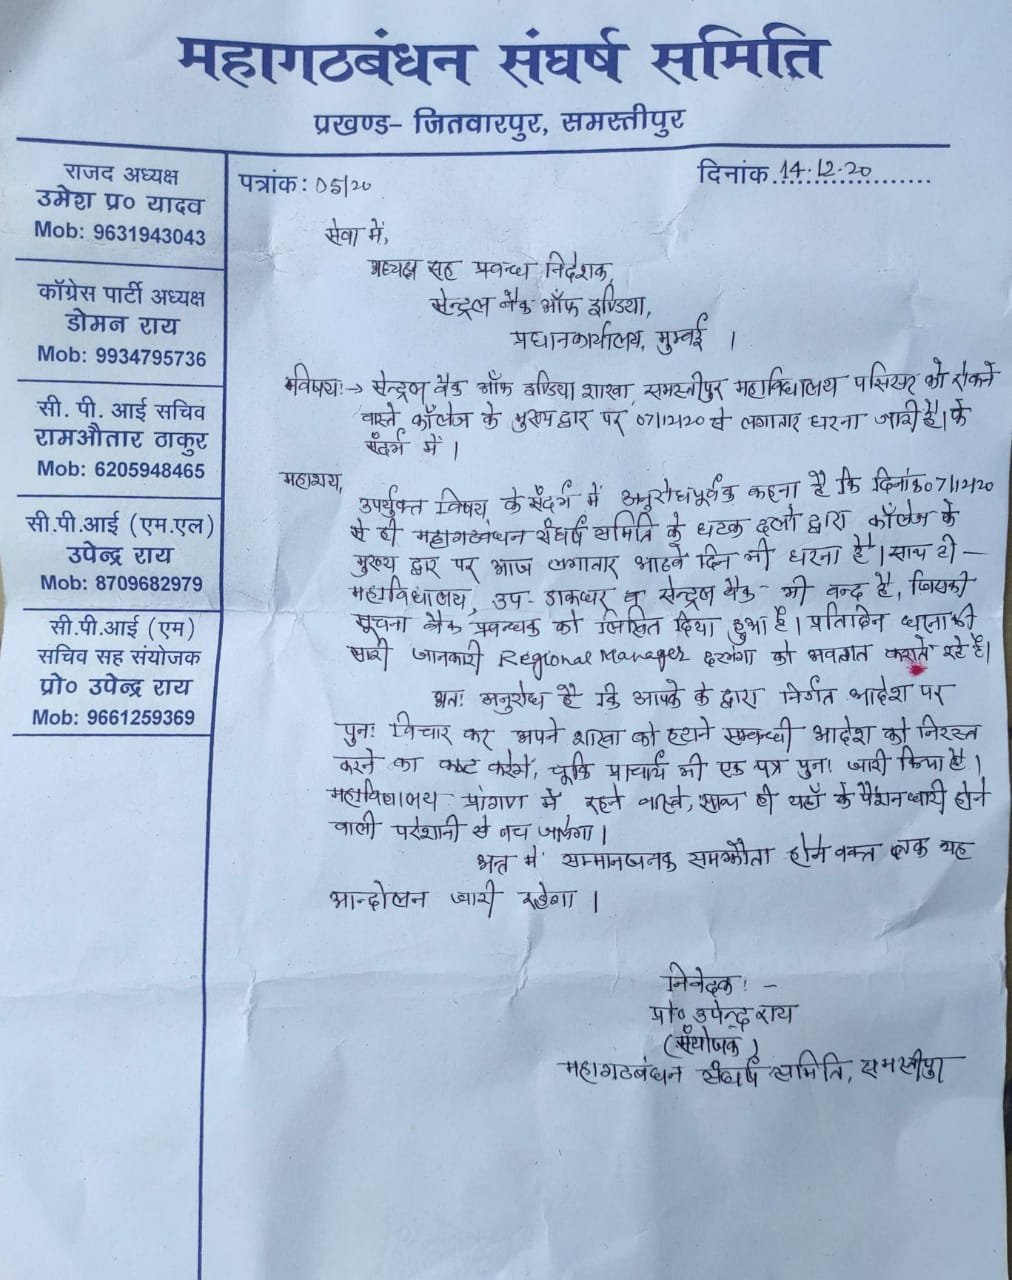 महागठबंधन संघर्ष समिति
प्रखण्ड- जितवारपुर, समस्तीपुर
राजद अध्यक्ष
उमेश प्र० यादव
Mob: 9631943043
कॉग्रेस पार्टी अध्यक्ष
डोमन राय
Mob: 9934795736
सी. पी. आई सचिव
रामऔतार ठाकुर
Mob: 6205948465
सी.पी.आई (एम.एल)
उपेन्द्र राय
Mob: 8709682979
सी.पी.आई (एम)
सचिव सह संयोजक
प्रो० उपेन्द्र राय
Mob: 9661259369
पत्रांक: 05/20
दिनांक 14.12.20
सेवा में,
अध्यक्ष सह प्रवन्ध निदेशक,
सेन्ट्रल बैंक ऑफ इण्डिया,
प्रधानकार्यालय, मुम्बई ।
विषयः→ सेन्ट्रल बैंक ऑफ इण्डिया शाखा, समस्तीपुर महाविद्यालय परिसर को रोकने
वास्ते कॉलेज के मुख्य द्वार पर 07/12/20 से लगातार धरना जारी है। के
संदर्भ में ।
महाशय,
उपर्युक्त विषय के संदर्भ में अनुरोधपूर्वक कहना है कि दिनांक 07/12/20
से ही महागठबंधन संघर्ष समिति के घटक दलों द्वारा कॉलेज के
मुख्य द्वार पर आज लगातार आठवे दिन भी धरना है। साथ ही –
महाविद्यालय, उप-डाकघर व सेन्ट्रल बैंक भी बन्द है, जिसकी
सूचना बैंक प्रवन्धक को लिखित दिया हुआ है। प्रतिदिन धरना की
सारी जानकारी Regional Manager दरभंगा को अवगत कराते रहे हैं।
अतः अनुरोध है कि आपके के द्वारा निर्गत आदेश पर
पुनः विचार कर अपने शाखा को हटाने सम्बन्धी आदेश को निरस्त
करने का कष्ट करेगें, चूकि प्राचार्य भी एक पत्र पुनः जारी किया है।
महाविद्यालय प्रांगण में रहने वास्ते, साथ ही यहाँ के पेंशनधारी होने
वाली परेशानी से बच जायेगा।
अन्त में सम्मानजनक समझौता होने वक्त तक यह
आन्दोलन जारी रहेगा ।
निवेदक: -
प्रो० उपेन्द्र राय
(संयोजक)
महागठबंधन संघर्ष समिति, समस्तीपुर